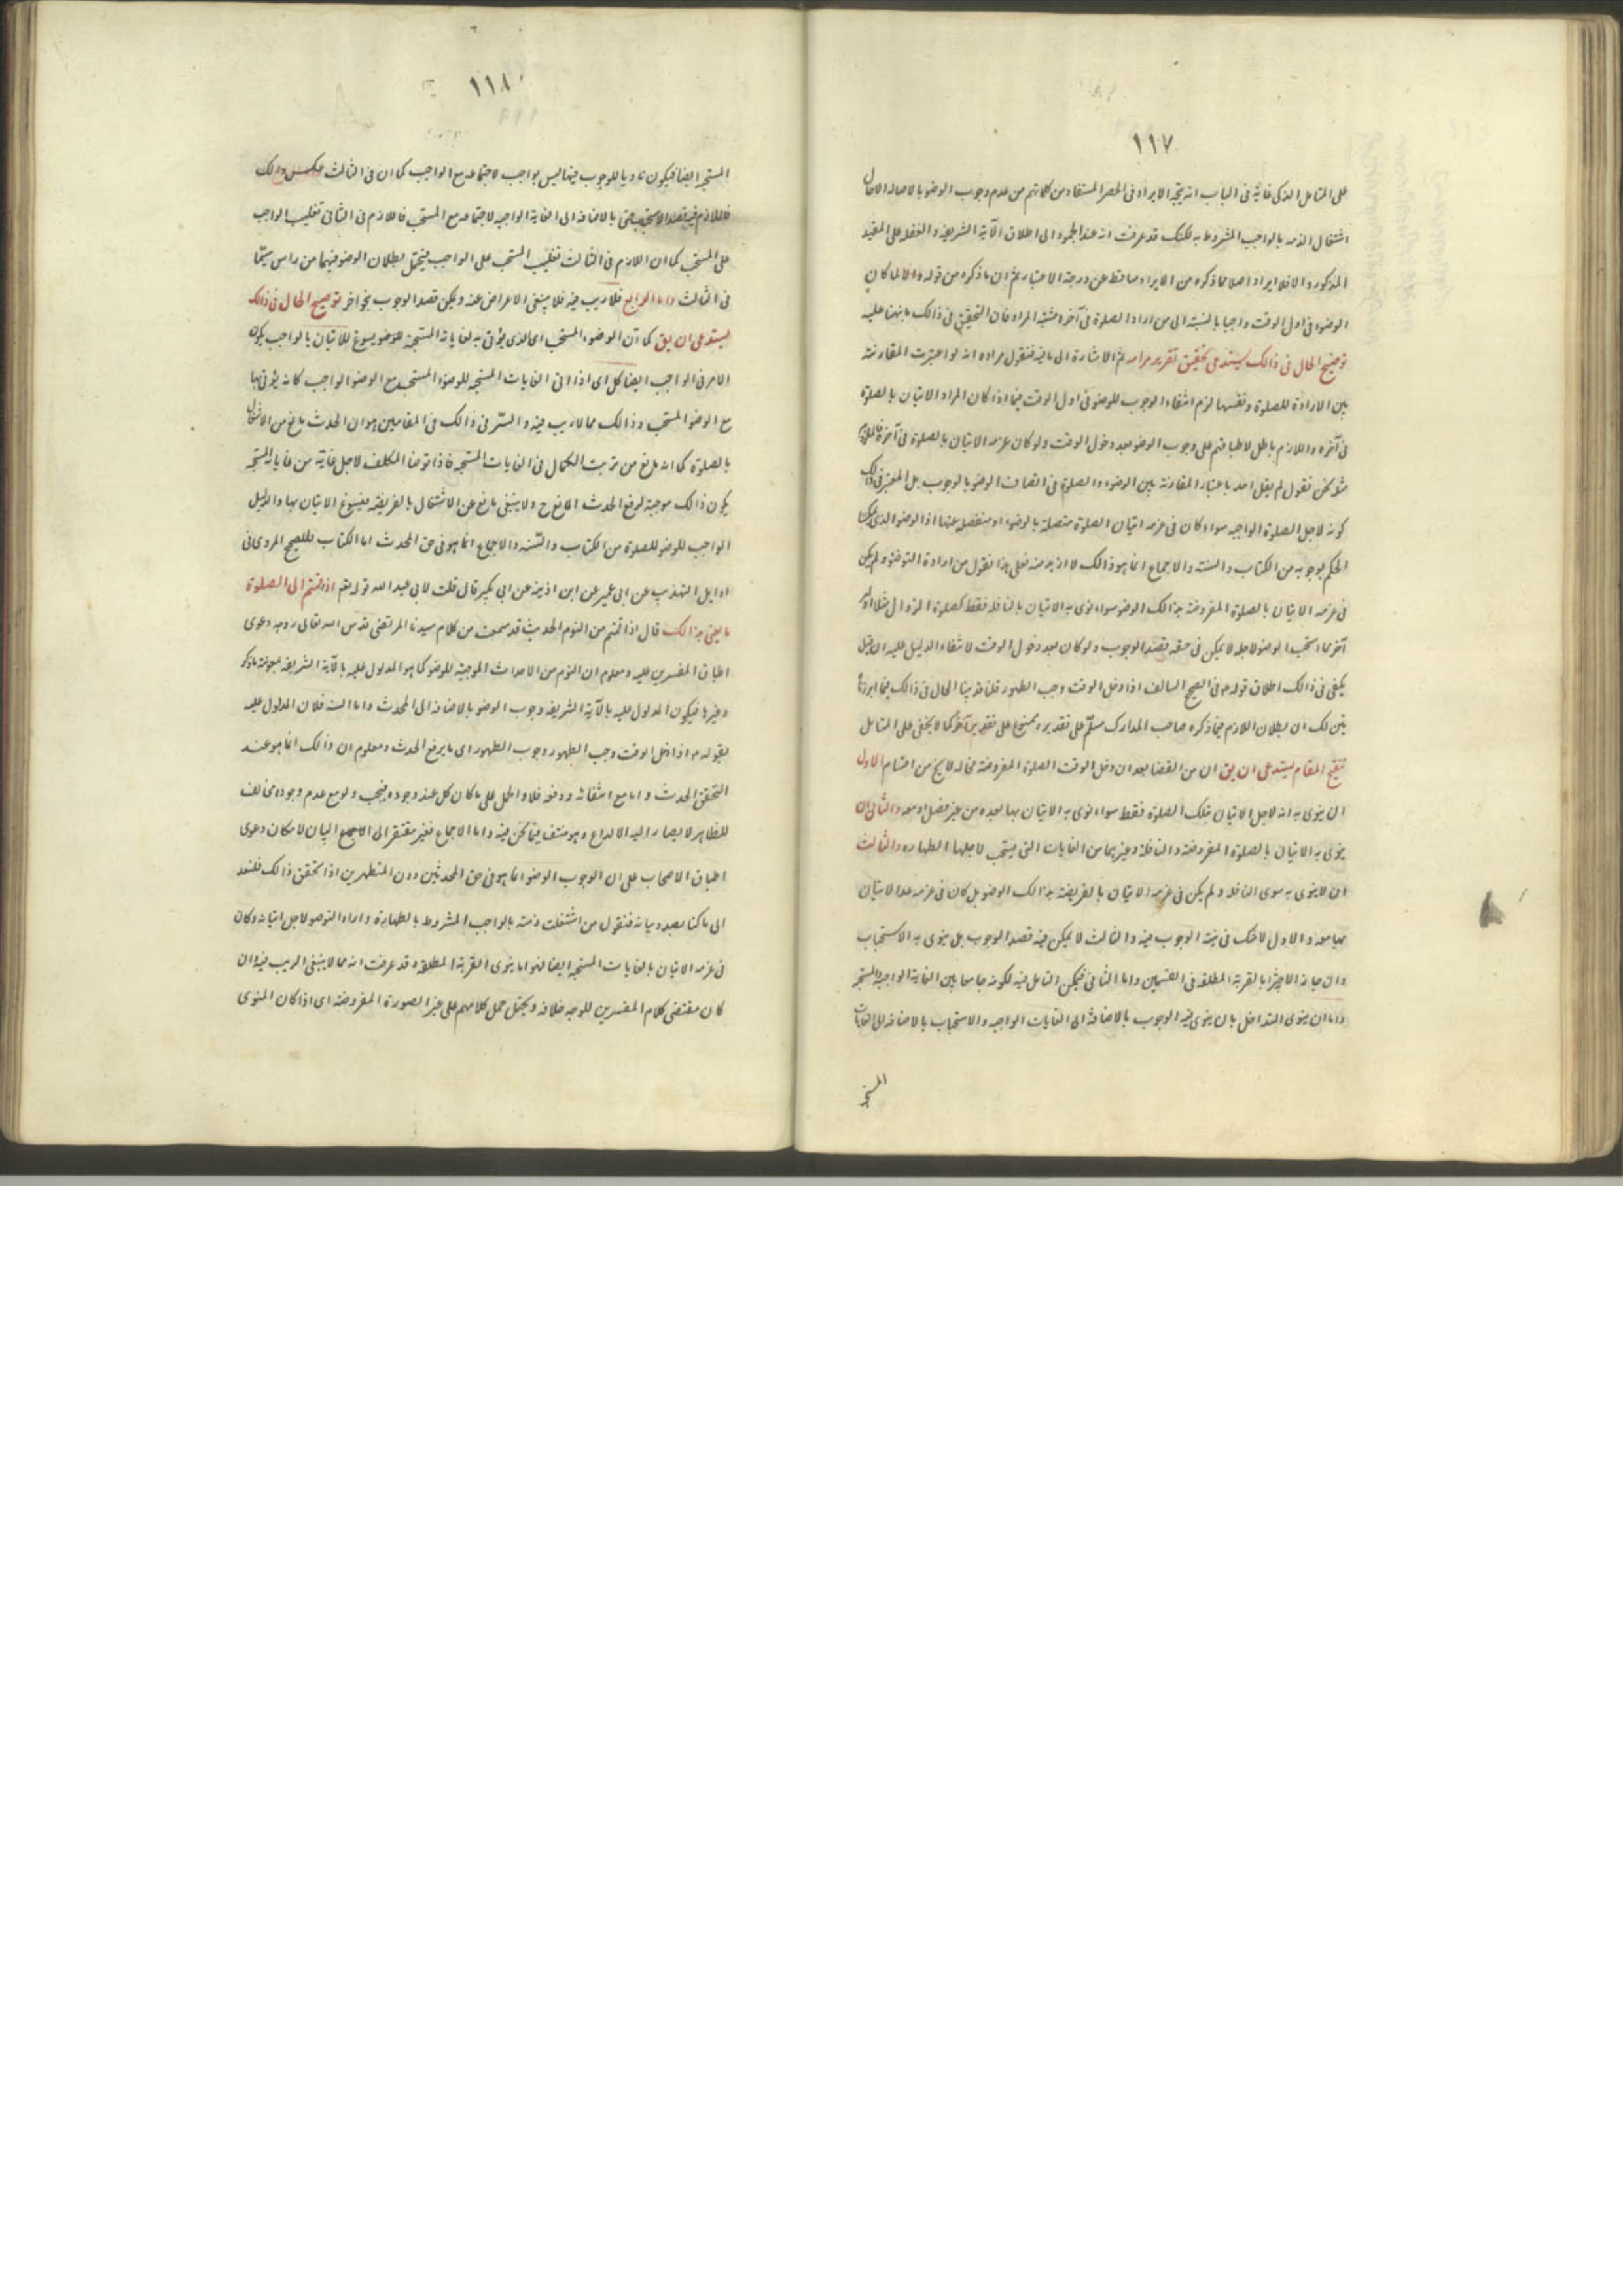 ١١٧
على المتامل الذكى فاية فى الباب انه يتجه الايراد فى الحصر المستفاد من كلماتهم من عدم وجوب الوضو بالاصالة الا حال
اشتغال الذمه بالواجب المشروط به لكنك قد عرفت انه عند الجمود الى اطلاق الآية الشريفة و الغفلة على المقيد
المذكور و الا فلا ايراد اصلا مما ذكره من الايراد ساقط عن درجة الاعتبار ثم ان ما ذكره من قوله والا لما كان
الوضوء فى اول الوقت واجبا بالنسبة الى من اراد الصلوة فى آخره مشتبه المراد فان التحقيق فى ذالك ما بنهنا عليه
توضيح الحال فى ذالك يستدعى تحقيق تقرير مرامه ثم الاشارة الى ما فيه فنقول مراده انه لو اعتبرت المقارنة
بين الارادة للصلوة و نفسها لزم انتفاء الوجوب للوضو فى اول الوقت فيما اذا كان المراد الاتيان بالصلوة
فى آخره و اللازم باطل لاطباقهم على وجوب الوضو بعد دخول الوقت ولو كان عزمه الاتيان بالصلوة فى آخره
مثلا نحن نقول لم يقل احد باعتبار المقارنة بين الوضوء و الصلوة فى اتصاف الوضو بالوجوب بل المعتبر فى ذالك
كونه لاجل الصلوة الواجبه سواء كان فى عزمه اتيان الصلوة متصلة بالوضوء او منفصله عنها اذا الوضو الذى
الحكم بوجوبه من الكتاب و السنة و الاجماع انما هو ذالك لا ازيد منه فعلى هذا نقول من اراده التوضؤ ولم يكن
فى عزمه الاتيان بالصلوة المفروضة بذالك الوضو سواء نوى به الاتيان بالنافلة فقط كصلوة الزوال مثلا او
آخر مما استحب الوضو لاجله لا يمكن فى حقه قصد الوجوب ولو كان بعد دخول الوقت لانتفاء الدليل عليه ان قيل
يكفى فى ذالك اطلاق قوله ع فى الصحيح السالف اذا دخل الوقت وجب الطهور قلنا قد بينا الحال فى ذالك فيما ابرزنا
تبين لك ان بطلان اللازم فيما ذكره صاحب المدارك مسلم على تقدير و ممنوع على تقدير آخر كما لا يخفى على المتامل
تنقيح المقام يستدعى ان يق ان من القضا بعد ان دخل الوقت الصلوة المفروضة حاله لا يخ من اقسام الاول
ان ينوى به انه لاجل الاتيان بتلك الصلوة فقط سواء نوى به الاتيان بها بعده من غير فصل او معه و الثانى ان
ينوى به الاتيان بالصلوة المفروضة و النافلة و غيرهما من الغايات التى يستحب لاجلها الطهاره و الثالث
ان لا ينوى به سوى النافلة و لم يكن فى عزمه الاتيان بالفريضة بذالك الوضو بل كان فى عزمه عدم الاتيان
بها معه و الاول لا شك فى نية الوجوب فيه و الثالث لا يمكن فيه قصد الوجوب بل ينوى به الاستحباب
وان جاز الاجتزا بالقربة المطلقه فى القسمين و اما الثانى فيمكن التامل فيه لكونه جامعا بين الغاية الواجبة و المستحبه
و اما ان ينوى التداخل بان ينوى فيه الوجوب بالاضافة الى الغايات الواجبه و الاستحباب بالاضافة الى الغايات
المستحبه
١١٨
المستحبه ايضا فيكون ناويا للوجوب فيما ليس بواجب لاجتماعه مع الواجب كما ان فى الثالث عكس ذلك
فاللازم فيه قصد الاستحباب حتى بالاضافة الى الغاية الواجبه لاجتماعه مع المستحب فاللازم فى الثانى تغليب الواجب
على المستحب كما ان اللازم فى الثالث تغليب المستحب على الواجب فيحتمل بطلان الوضو فيهما من راس سيما
فى الثالث و اما الرابع فلا ريب فيه فلا ينبغى الاعراض عنه و يمكن قصد الوجوب بنحو اخر توضيح الحال فى ذالك
يستدعى ان يق كما ان الوضوء المستحب اى الذى يؤتى به لغاياته المستحبة للوضو يسوغ للاتيان بالواجب يكون
الامر فى الواجب ايضا كل اى اذا اتى الغايات المستحبه للوضوء المستحب مع الوضو الواجب كانه يؤتى بها
مع الوضو المستحب و ذالك مما لا ريب فيه و السر فى ذالك فى المقامين هو ان الحدث مانع من الاشتغال
بالصلوة كما انه مانع من ترتب الكمال فى الغايات المستحبه فاذا توضا المكلف لاجل غاية من غاياته المستحبه
يكون ذالك موجبة لرفع الحدث المانع ح ولا يبقى مانع عن الاشتغال بالفريضة فيسوغ الاتيان بها و الدليل
الواجب للوضو للصلوة من الكتاب و السنه و الاجماع انما هو فى حق المحدث اما الكتاب فللصحيح المروى فى
اوايل التهذيب عن ابى عمير عن ابن اذينه عن ابى بكير قال قلت لابى عبد الله قوله تعم اذا قمتم الى الصلوة
ما يعنى بذالك قال اذا قمتم من النوم الحديث قد سمعت من كلام سيدنا المرتضى قدس الله تعالى روحه دعوى
اطباق المفسرين عليه و معلوم ان النوم من الاحداث الموجبة للوضو كما هو المدلول عليه بالآية الشريفه بمعونة ما ذكر
و غيرها فيكون المدلول عليه بالآية الشريفه وجوب الوضو بالاضافة الى المحدث و اما السنة فلان المدلول عليه
بقوله ع اذا دخل الوقت وجب الطهور وجوب الطهور اى ما يرفع الحدث و معلوم ان ذالك انما هو عند
التحقق الحدث و اما مع انتفائه و دفعه فلا و الحمل على ما كان كل عند وجوده فيجب ولو مع عدم وجوده مخالف
للظاهر لا يصار اليه الا لداع و هو منتف فيما نحن فيه و اما الاجماع فغير مفتقر الى البيان لامكان دعوى
اطباق الاصحاب على ان الوجوب الوضو انما هو فى حق المحدثين دون المتطهرين اذا تحقق ذالك فلنعد
الى ما كنا بصدد بيانه فنقول من اشتغلت ذمته بالواجب المشروط بالطهارة و اراد التوضو لاجل اتيانه و كان
فى عزمه الاتيان بالغايات المستحبه ايضا فهو اما ينوى القربة المطلقة و قد عرفت انه مما لا ينبغى الريب فيه و ان
كان مقتضى كلام المفسرين للوجه خلافه و يحتمل حمل كلامهم على غير الصورة المفروضة اى اذا كان المنوى